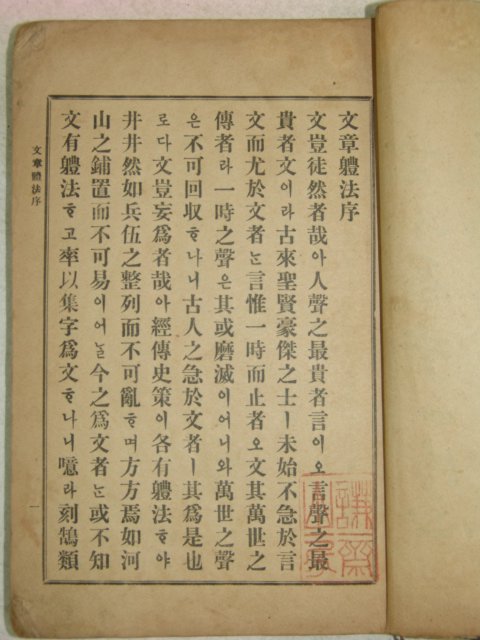 文章軆法序
文豈徒然者哉아人聲之最貴者言이오言聲之最
貴者文이라古來聖賢豪傑之士ㅣ未始不急於言
文而尤於文者는言惟一時而止者오文其萬世之
傳者라一時之聲은其或磨滅이어니와萬世之聲
은不可回収하나니古人之急於文者ㅣ其爲是也
로다文豈妄爲者哉아經傳史策이各有軆法하야
井井然如兵伍之整列而不可亂하며方方焉如河
山之鋪置而不可易이어늘今之爲文者는或不知
文有軆法하고率以集字爲文하나니噫라刻鵠類
文章軆法序
一